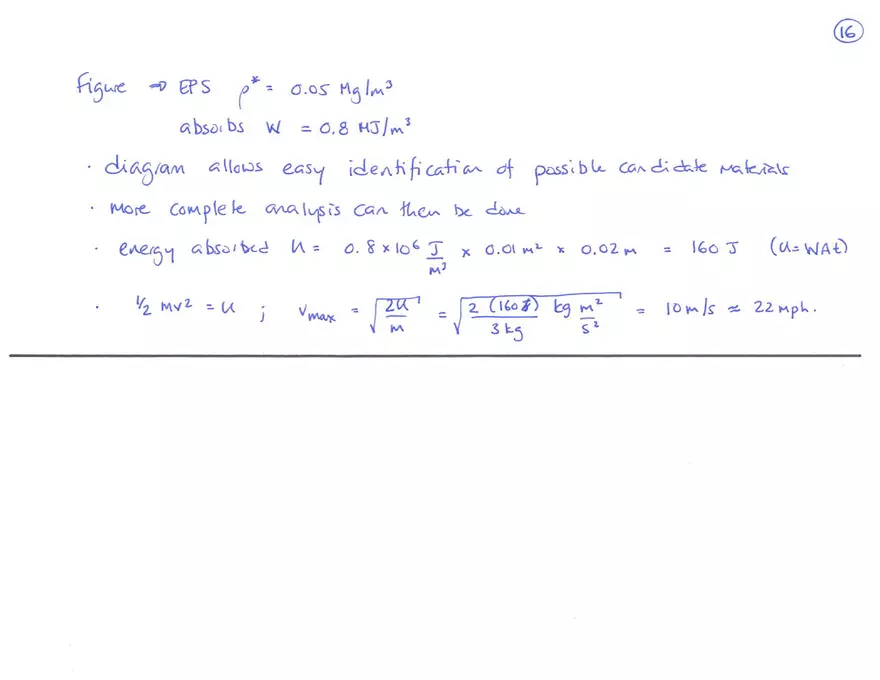 16
Figure ⇒ EPS ρ* = 0.05 Mg/m³
absorbs W = 0.8 MJ/m³
· diagram allows easy identification of possible candidate materials
· more complete analysis can then be done
· energy absorbed U = 0.8 × 10⁶ J/m³ × 0.01 m² × 0.02 m = 160 J (U = WAt)
· 1/2 mv² = U ; v_max = √(2U/m) = √(2 (160) / 3 kg kg m²/s²) = 10 m/s ≈ 22 mph.